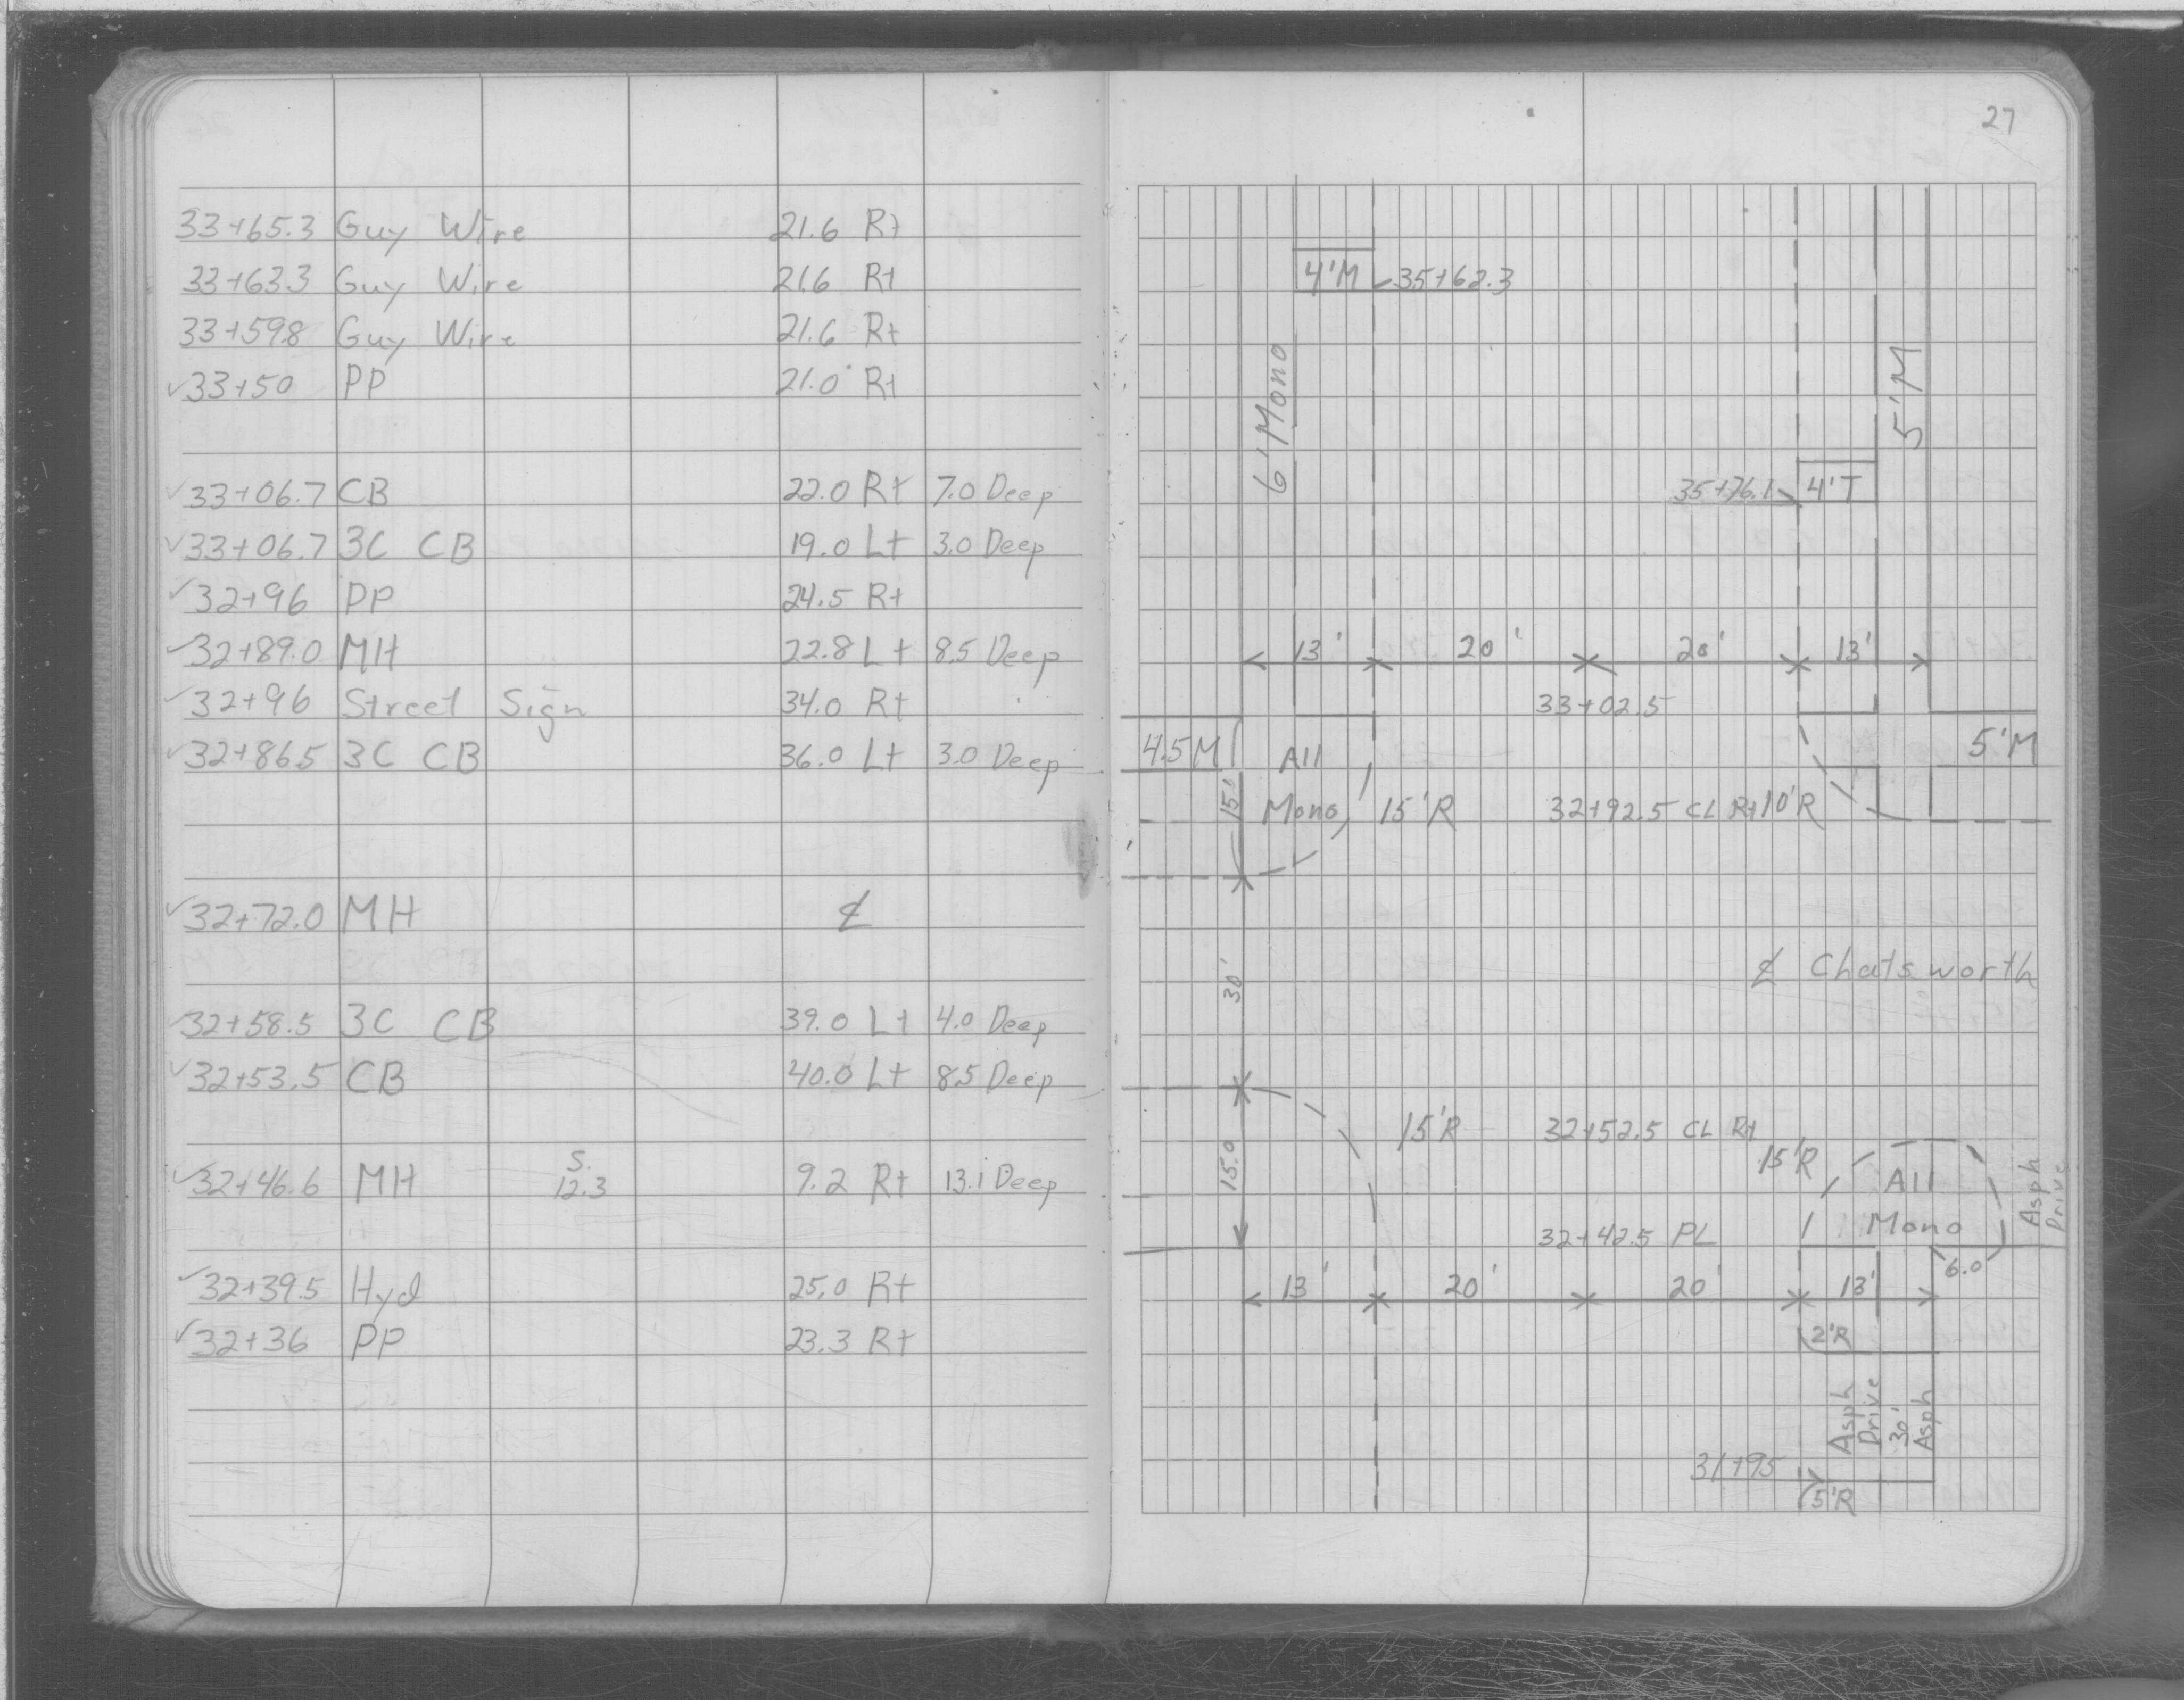 33+65.3 Guy Wire 21.6 Rt
33+63.3 Guy Wire 21.6 Rt
33+59.8 Guy Wire 21.6 Rt
✓33+50 PP 21.0 Rt
✓33+06.7 CB 22.0 Rt 7.0 Deep
✓33+06.7 3C CB 19.0 Lt 3.0 Deep
✓32+96 PP 24.5 Rt
✓32+89.0 MH 22.8 Lt 8.5 Deep
✓32+96 Street Sign 34.0 Rt
✓32+86.5 3C CB 36.0 Lt 3.0 Deep
✓32+72.0 MH ℄
✓32+58.5 3C CB 39.0 Lt 4.0 Deep
✓32+53.5 CB 40.0 Lt 8.5 Deep
✓32+46.6 MH S. 12.3 9.2 Rt 13.1 Deep
✓32+39.5 Hyd 25.0 Rt
✓32+36 PP 23.3 Rt
27
4'M 35+62.3
6' Mono
5'M
35+76.1 4'T
13' 20' 20' 13'
33+02.5
4.5M All 5'M
15' Mono 15'R 32+92.5 CL Rt 10'R
30' ℄ Chatsworth
15'R 32+52.5 CL Rt
15.0 15'R All
Mono
Asph
Drive
32+42.5 PL
6.0
13' 20' 20' 13'
2'R
Asph
Drive
30'
Asph
31+95
5'R